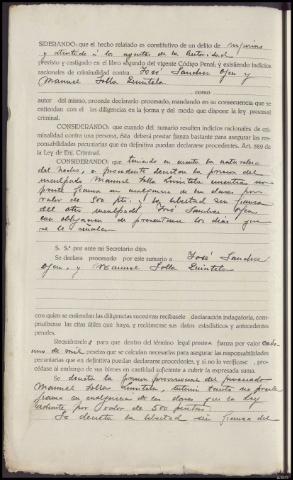 SIDERANDO: que el hecho relatado es constitutivo de un delito de injurias
y atentado a los agentes de la Autoridad
previsto y castigado en el libro segundo del vigente Código Penal; y existiendo indicios
racionales de criminalidad contra José Sandas Ogen y
Manuel Solla Quintela
como
autor del mismo, procede declararlo procesado, mandando en su consecuencia que se
entiendan con él las diligencias en la forma y del modo que dispone la ley procesal
criminal.
CONSIDERANDO: que cuando del sumario resulten indicios racionales de cri-
minalidad contra una persona, ésta deberá prestar fianza bastante para asegurar las res-
ponsabilidades pecuniarias que en definitiva puedan declararse procedentes. Art. 589 de
la Ley de Enj. Criminal.
CONSIDERANDO: que teniendo en cuenta la naturaleza
del hecho, es procedente decretar la prision del
procesado Manuel Solla Quintela mientras no
preste fianza en cualquiera de sus clases por
valor de 500 pts y la libertad sin fianza
del otro José Sandas Ogen
con obligacion de presentarse los dias que
se le señalen
S. S.ª por ante mi Secretario dijo:
Se declara procesado por este sumario a José Sandas
Ogen, y Manuel Solla Quintela
con quien se entiendan las diligencias sucesivas recíbasele declaración indagatoria, com-
pruébanse las citas útiles que haya, y reclámense sus datos estadísticos y antecedentes
penales.
Requiérasele para que dentro del término legal preste fianza por valor cada
uno de mil pesetas que se calculan necesarias para asegurar las responsabilidades
pecuniarias que en definitiva puedan declararse procedentes, y si no lo verificase, pro-
cédase al embargo de sus bienes en cantidad suficiente a cubrir la expresada suma.
Se decreta la prision provisional del procesado
Manuel Solla Quintela, tanto no preste
fianza en cualquiera de las clases que la Ley
admite, por valor de 500 pesetas
Se decreta la libertad sin fianza del